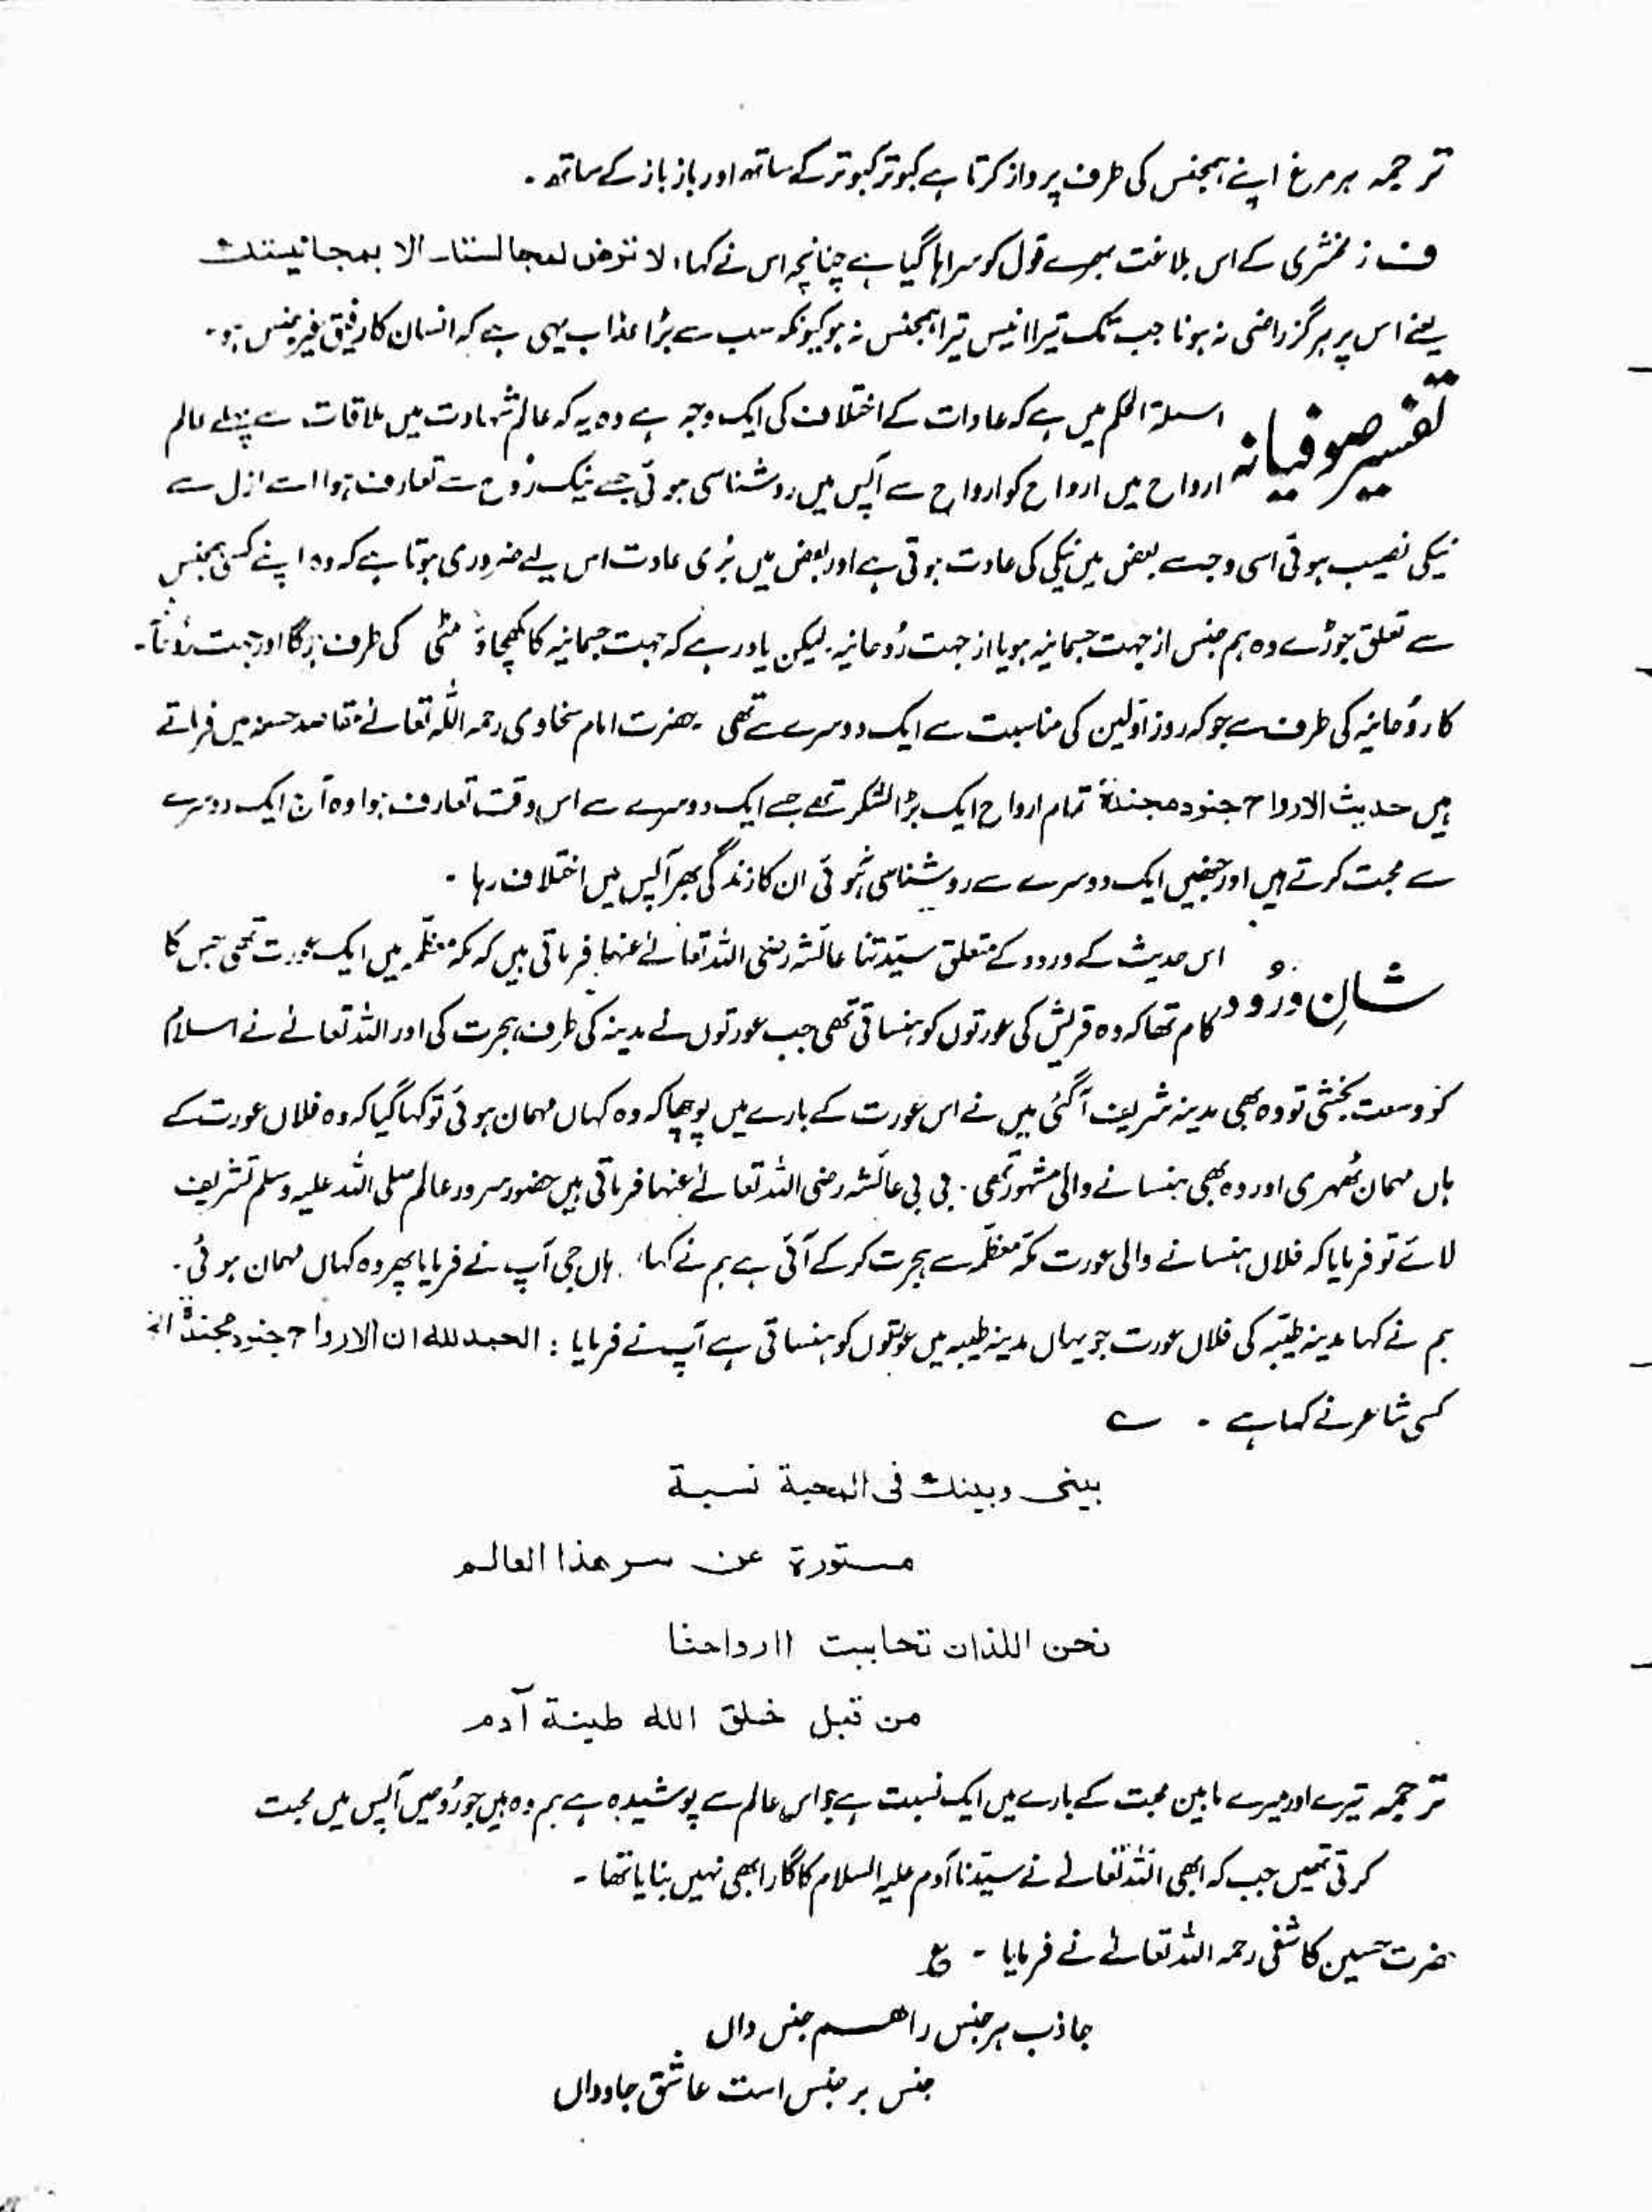 ترجمہ ہر مرغ اپنے ہمجنس کی طرف پرواز کرتا ہے کبوتر کبوتر کے ساتھ اور باز باز کے ساتھ ۔
ف : زمخشری کے اس بلاغت بھرے قول کو سراہا گیا ہے چنانچہ اس نے کہا، لا ترض لمجالستك الا بمجانیستك
یعنے اس پر ہرگز راضی نہ ہونا جب تک تیرا انیس تیرا ہمجنس نہ ہو کیونکہ سب سے بڑا عذاب یہی ہے کہ انسان کا رفیق غیر جنس ہو ۔
تفسیر صوفیانہ
اسئلۃ الحکم میں ہے کہ عادات کے اختلاف کی ایک وجہ ہے وہ یہ کہ عالم شہادت میں ملاقات سے پہلے عالم
ارواح میں ارواح کو ارواح سے آپس میں روشناسی ہوئی جسے نیک رُوح سے تعارف ہوا اسے ازل سے
نیکی نصیب ہوتی اسی وجہ سے بعض میں نیکی کی عادت ہوتی ہے اور بعض میں بُری عادت اس لیے ضروری ہوتا ہے کہ وہ اپنے کسی ہمجنس
سے تعلق جوڑے وہ ہم جنس از جہت جسمانیہ ہو یا از جہت رُوحانیہ۔ لیکن یاد رہے کہ جہت جسمانیہ کا کھچاؤ مٹی کی طرف ہوگا اور جہت رُوحانیہ
کا رُوحانیہ کی طرف سے جو کہ روز اوّلین کی مناسبت سے ایک دوسرے سے تھی ۔ حضرت امام سخاوی رحمہ اللہ تعالےٰ مقاصد حسنہ میں فرماتے
ہیں حدیث الارواح جنود مجندۃ تمام ارواح ایک بڑا لشکر تھے جسے ایک دوسرے سے اس وقت تعارف ہوا وہ آج ایک دوسرے
سے محبت کرتے ہیں اور جنھیں ایک دوسرے سے روشناسی ہُوئی ان کا زندگی بھر آپس میں اختلاف رہا ۔
شانِ ورُود
اس حدیث کے ورود کے متعلق سیّدتنا عائشہ رضی اللہ تعالےٰ عنہا فرماتی ہیں کہ مکہ معظّمہ میں ایک عورت تھی جس کا
کام تھا کہ وہ قریش کی عورتوں کو ہنساتی تھی جب عورتوں نے مدینہ کی طرف ہجرت کی اور اللہ تعالےٰ نے اسلام
کو وسعت بخشی تو وہ بھی مدینہ شریف آگئی میں نے اس عورت کے بارے میں پوچھا کہ وہ کہاں مہمان ہوئی تو کہا گیا کہ وہ فلاں عورت کے
ہاں مہمان ٹھہری اور وہ بھی ہنسانے والی مشہور تھی ۔ بی بی عائشہ رضی اللہ تعالےٰ عنہا فرماتی ہیں حضور سرور عالم صلی اللہ علیہ وسلم تشریف
لائے تو فرمایا کہ فلاں ہنسانے والی عورت مکّہ معظّمہ سے ہجرت کرکے آئی ہے ہم نے کہا، ہاں جی آپ نے فرمایا پھر وہ کہاں مہمان ہوئی ۔
ہم نے کہا مدینہ طیّبہ کی فلاں عورت جو یہاں مدینہ طیبہ میں عورتوں کو ہنساتی ہے آپ نے فرمایا : الحمد للہ ان الارواح جنود مجندۃ الخ
کسی شاعر نے کہا ہے ۔ ؎
بینی وبینك فی المحبة نسبة
مستورة عن سر هذا العالم
نحن اللذان تحاببت اارواحنا
من قبل خلق الله طینة آدم
ترجمہ تیرے اور میرے مابین محبت کے بارے میں ایک نسبت ہے جو اس عالم سے پوشیدہ ہے ہم وہ ہیں جو رُوحیں آپس میں محبت
کرتی تھیں جب کہ ابھی اللہ تعالےٰ نے سیّدنا آدم علیہ السلام کا گارا بھی نہیں بنایا تھا ۔
حضرت حسین کاشفی رحمہ اللہ تعالےٰ نے فرمایا ۔ ؏
جاذب ہر جنس را ھم جنس داں
جنس بر جنس است عاشق جاوداں